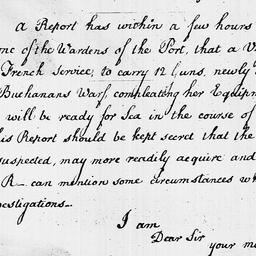 A Report has within a few hours
one of the Wardens of the Port, that a V
French Service, to carry 12 Guns, newly
Buchanans Warf, compleating her Equipm
will be ready for Sea in the course of
his Report should be kept secret that the
suspected, may more readily acquire and
R— can mention some circumstances wh
estigations—
I am
Dear Sir
your m